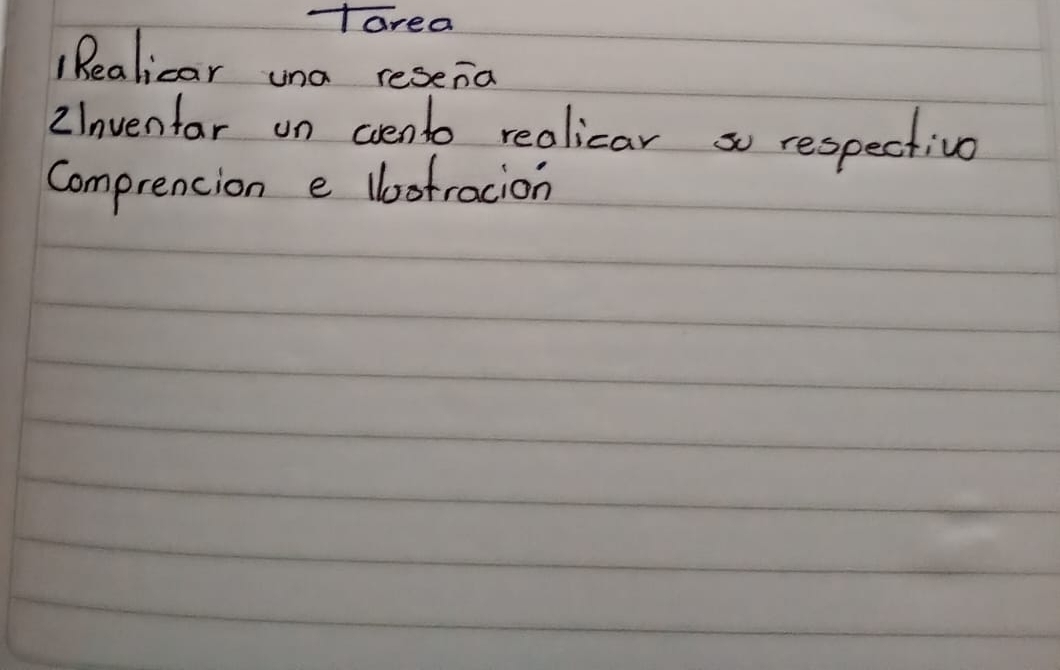 Tarea
1 Realicar una reseña
2 Inventar un cuento realicar su respectivo
Comprencion e Ilustración